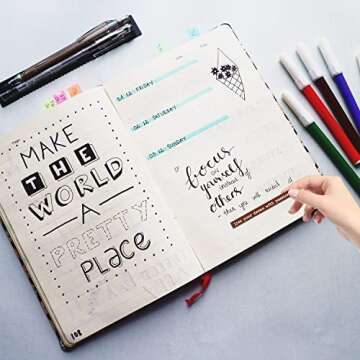 MAKE
THE
WORLD
A
PRETTY
PLACE
04.12. FRIDAY
05.12. SATURDAY
06.12. SUNDAY
focus on
yourself
instead of
others
then you will